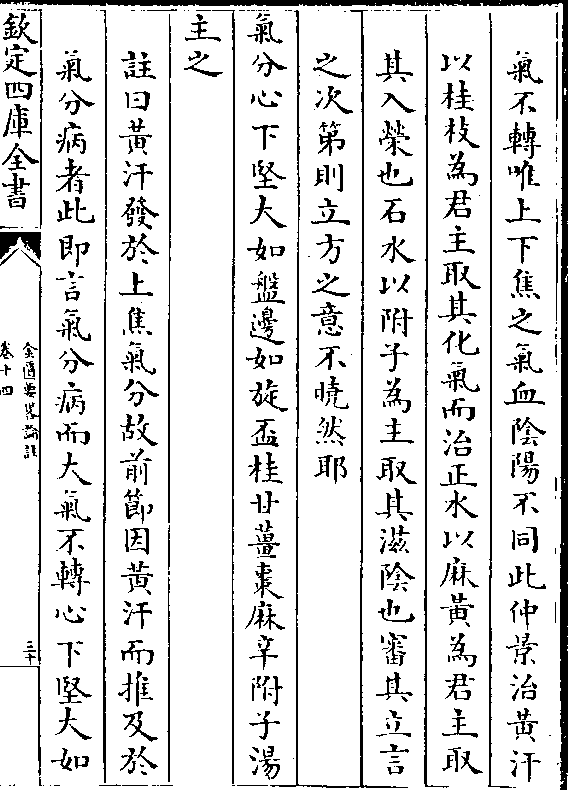 氣不轉唯上下焦之氣血陰陽不同此仲景治黃汗
以桂枝為君主取其化氣而治正水以麻黃為君主取
其入榮也石水以附子為主取其滋陰也審其立言
之次第則立方之意不曉然耶
氣分心下堅大如盤邊如旋盃桂甘薑棗麻辛附子湯
主之
註曰黃汗發於上焦氣分故前節因黃汗而推及於
氣分病者此即言氣分病而大氣不轉心下堅大如
欽定四庫全書
金匱要畧論註
卷十四
三十